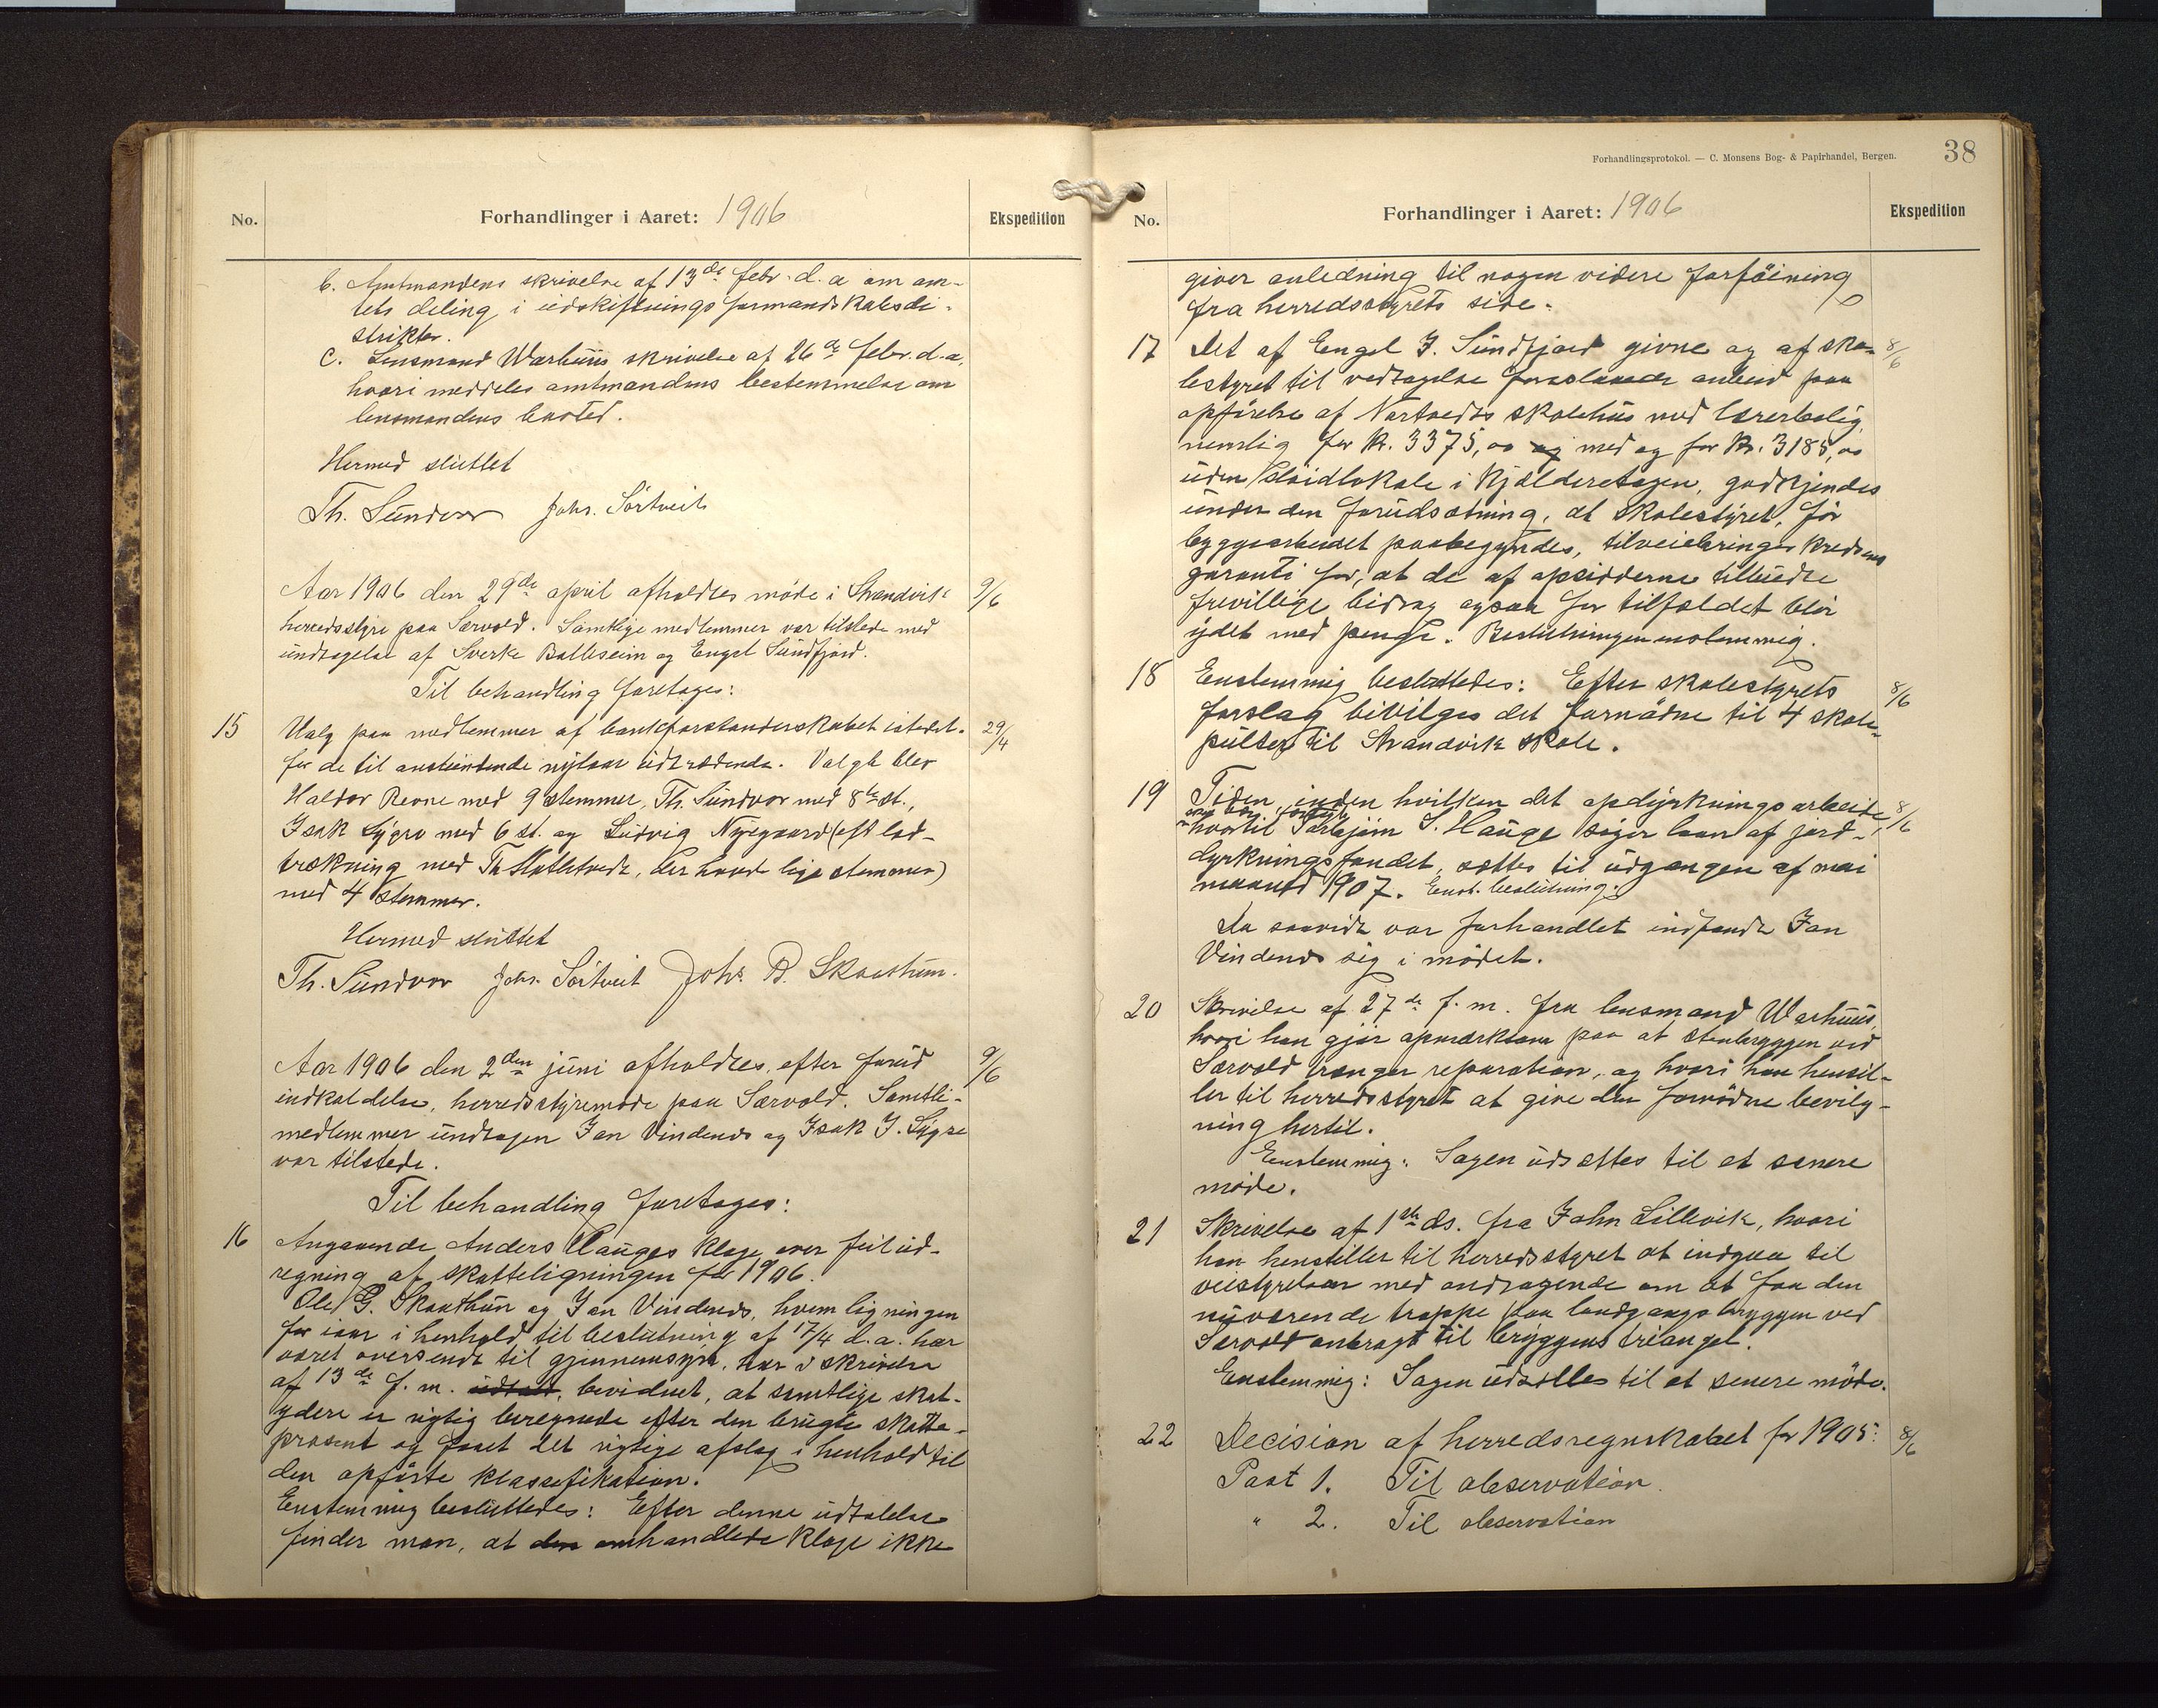 No.
Forhandlinger i Aaret: 1906
Ekspedition
b. Amtmandens skrivelse af 13de febr. d. a. om am-
tets deling i udskiftningsformandskabsdi-
strikter.
c. Lensmand Warhuus skrivelse af 26de febr. d. a.
hvori meddeles amtmandens bestemmelse om
lensmandens bosted.
Hermed sluttet
Th. Sundvor Johs. Sörtveit
Aar 1906 den 29de april afholdtes möde i Strandvik 9/6
herredsstyre paa Særvold. Samtlige medlemmer var tilstede med
undtagelse af Sverke Balleseim og Engel Sundfjord.
Til behandling foretoges:
15 Valg paa medlemmer af bankforstanderskabet istedet- 29/4
for de til anstundende nytaar udtrædende. Valgt blev
Haldor Revne med 9 stemmer, Th. Sundvor med 8te st.,
Isak Lygre med 6 st. og Ludvig Nygaard (eft lod-
trækning med Th Hatletvedt, der havde lige stemmer)
med 4 stemmer.
Hermed sluttet
Th. Sundvor Johs. Sörtveit Johs. B. Skaathun.
Aar 1906 den 2den juni afholdtes, efter forud 9/6
indkaldelse, herredsstyremöde paa Særvold. Samtli-
medlemmer undtagen Jan Vindenes og Isak J. Lygre
var tilstede.
Til behandling foretoges:
16 Angaaende Anders Hauges klage over feil ud-
regning af skatteligningen for 1906.
Ole G. Skaathun og Jan Vindenes, hvem ligningen
for iaar i henhold til beslutning af 17/4 d. a. har
været oversendt til gjennemsyn, har i skrivelse
af 13de f. m. udtalt, bevidnet, at samtlige skat-
ydere er rigtig beregnede efter den brugte skatte-
prosent og faaet det rigtige afslag i henhold til
den opförte klassefikation.
Enstemmig besluttedes: Efter denne udtalelse
finder man, at den omhandlede klage ikke
Forhandlingsprotokol. — C. Monsens Bog- & Papirhandel, Bergen. 38
No.
Forhandlinger i Aaret: 1906
Ekspedition
giver anledning til nogen videre forföining
fra herredsstyrets side.
17 Det af Engel J. Sundfjord givne og af sko- 8/6
lestyret til vedtagelse foreslaaede anbud paa
opförelse af Nortvedts skolehus med lærerbolig,
nemlig for kr. 3375,00 og med og for kr. 3185,00
uden slöidlokale i kjælderetagen, godkjendes
under den forudsætning, at skolestyret, för
byggearbeidet paabegyndes, tilveiebringer kredsens
garanti for, at de af opsidderne tilbudte
frivillige bidrag ogsaa for tilfældet blir
ydet med penge. Beslutningen enstemmig.
18 Enstemmig besluttedes: Efter skolestyrets 8/6
forslag bivilges det fornödne til 4 skole-
pulter til Strandvik skole.
19 Tiden, inden hvilken det opdyrkningsarbeide 8/6
hvortil Torbjörn S. Hauge söger laan af jord-
dyrkningsfondet, sættes til udgangen af mai
maaned 1907. Enst. beslutning.
Da saavidt var forhandlet indfandt Jan
Vindenes sig i mödet.
20 Skrivelse af 27de f. m. fra lensmand Warhuus,
hvori han gjör opmærksom paa at stenbryggen ved
Særvold trænger reparation, og hvori han henstil-
ler til herredsstyret at give den fornödne bevilg-
ning hertil.
Enstemmig: Sagen udsættes til et senere
möde.
21 Skrivelse af 1ste ds. fra John Lillevik, hvori
han henstiller til herredsstyret at indgaa til
veistyrelsen med andragende om at faa den
nuværende trappe paa landgangsbryggen ved
Særvold anbragt til bryggens triangel.
Enstemmig: Sagen udsættes til et senere möde.
22 Decision af herredsregnskabet for 1905: 8/6
Post 1. Til observation.
" 2. Til observation